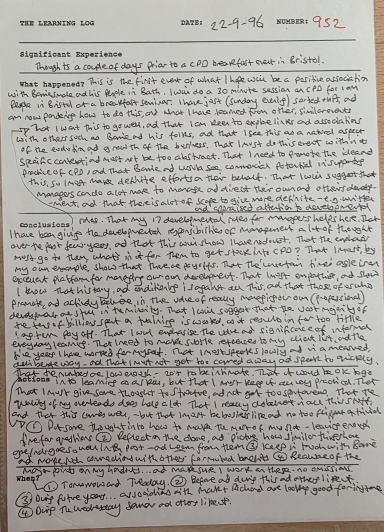 THE LEARNING LOG DATE: 22-9-96 NUMBER: 952
Significant Experience
Thoughts a couple of days prior to a CPD breakfast event in Bristol.
What happened? This is the first event of what I hope will be a positive association
with and his people in Bath. I will do a 30 minute session on CPD for 
people in Bristol at a breakfast seminar. I have just (Sunday evening) sorted out, and
am now pondering how to do this, and what I have learned from other, similar events
That I want this to go well, and that I am keen to explore links and associations
with others such as and his folks, and that I see this as a natural aspect
of the evolution and growth of the business. That I must do this event within its
specific context, and must not be too abstract. That I need to promote the idea and
practice of CPD and that will see commercial potential in
this, so I must make definite efforts on their behalf. That I will suggest that
managers can do a lot more to manage and direct their own and others develop-
ment, and that there is a lot of scope to give more definite
and organised attention to developmental
Conclusions: roles. That my 17 developmental roles for managers helps here. That
I have been giving the developmental responsibilities of management a lot of thought
over the past few years, and that this will show I have no doubt. That the emphasis
must go to them, what's in it for them to get stuck into CPD? That I start, by
my own example, show that there are payoffs. That the uncertain times
excellent platform for managing our own development. That I must empathise, and show
I know that history, and conditioning is against all this, and that those of us who
promote, and actively believe in, the value of really managing our (professional)
development are still in the minority. That I will suggest that the vast majority of
the tens of billions spent on training is wasted, as it results in far too little
long term pay off. That I will emphasise the value and significance of informal
everyday learning. That I need to make subtle references to my client list, and the
five years I have worked for myself. That I must speak slowly and in a measured,
deliberate way and that I must not get too carried away and speak too quickly.
That the numbers are low enough - 20? to be intimate. That it would be OK to go
Actions into learning as a skill, but that I must keep it all very practical. That
that I must give some thought to structure, and not get too spontaneous. That the
quality of my overheads does help a lot. That I really do believe in all this stuff,
and that this comes well, - but that I must be businesslike and not too flippant
(1) Put some thought into how to make the most of my site - leaving enough
time for questions (2) Reflect on the above, and picture how similar things have
gone, and goes well in the past - and learn from them (3) Keep in touch with
and make more connections with other (4) Because of the
major points on my handouts... and make sure I work on these - no omissions.
When? (1) Tomorrow and Tuesday. (2) Before and during this and others like it.
(3) During future years... associations with are looking good for long time
(4) During the Wednesday seminar and others like it.